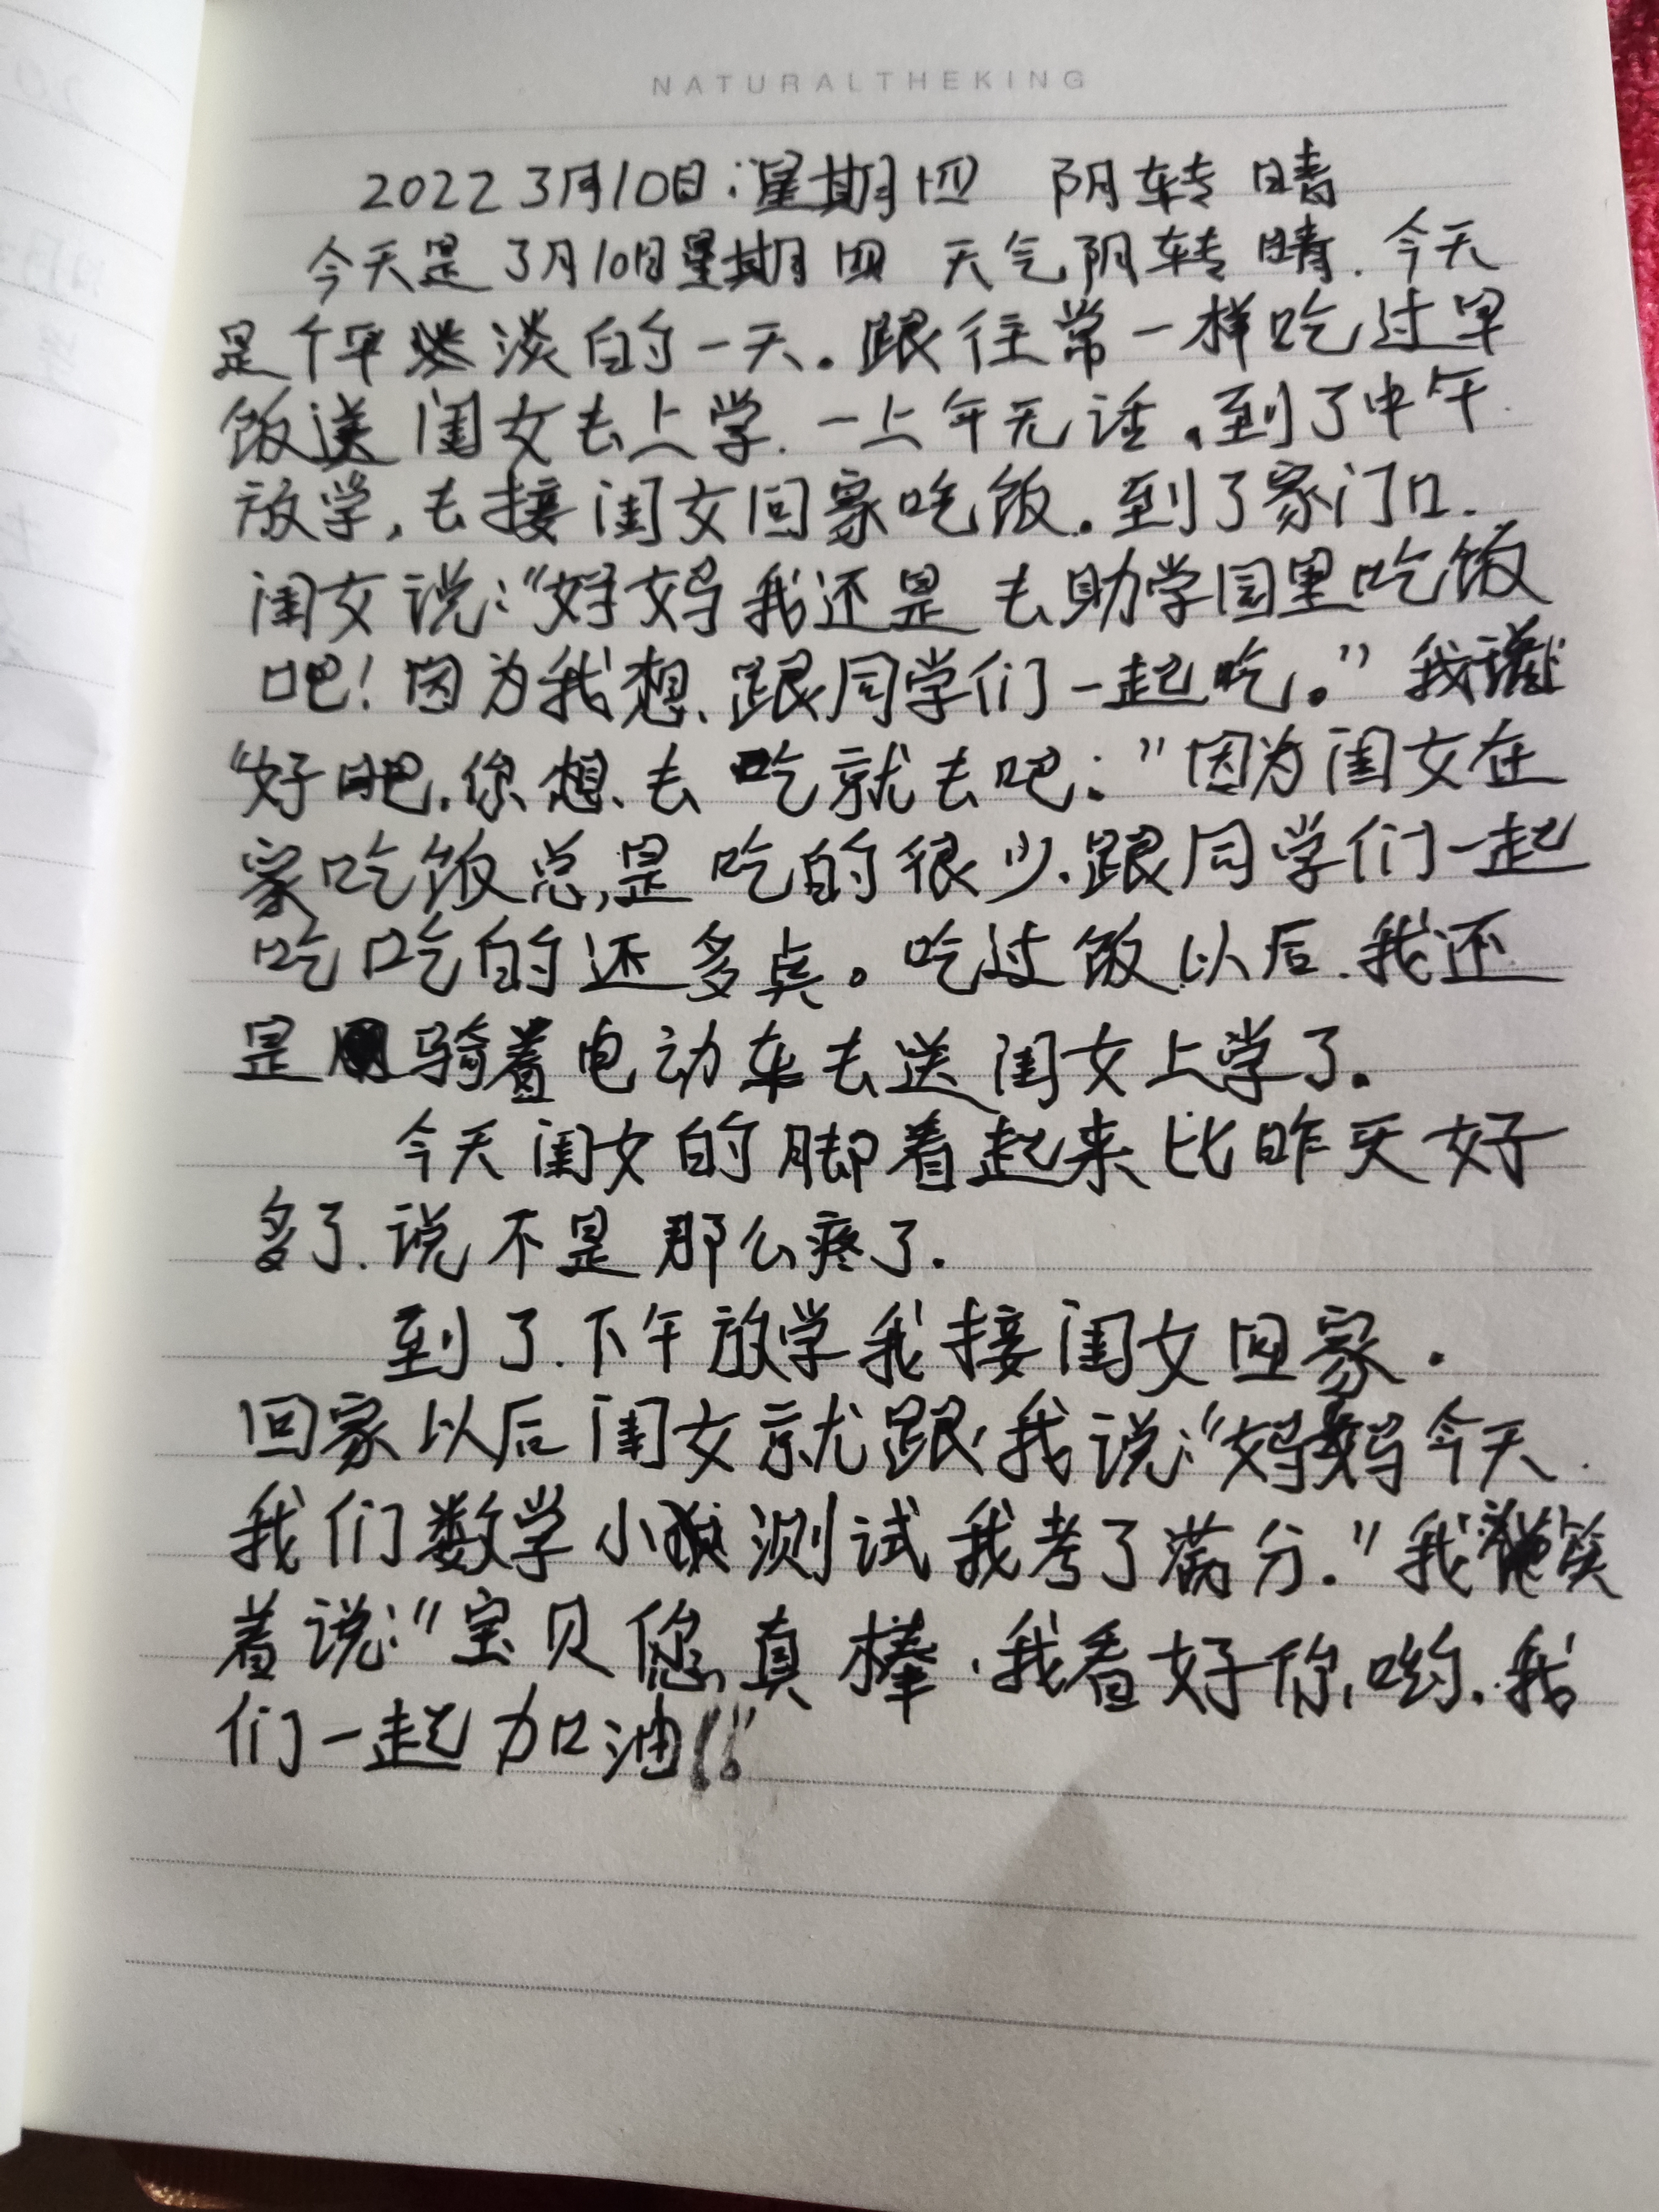 NATURALTHEKING
2022 3月10日:星期四 阴转晴
今天是3月10日星期四 天气阴转晴.今天
是个平淡的一天.跟往常一样吃过早
饭送闺女去上学.一上午无话.到了中午
放学,去接闺女回家吃饭.到了家门口.
闺女说:“妈妈我还是去助学园里吃饭
吧!因为我想跟同学们一起吃。”我说
“好吧.你想去吃就去吧:”因为闺女在
家吃饭总是吃的很少.跟同学们一起
吃吃的还多点。吃过饭以后.我还
是骑着电动车去送闺女上学了.
今天闺女的脚看起来比昨天好
多了.说不是那么疼了.
到了下午放学我接闺女回家.
回家以后闺女就跟我说:“妈妈今天
我们数学小测试我考了满分.”我笑
着说:“宝贝您真棒.我看好你哟.我
们一起加油!!”